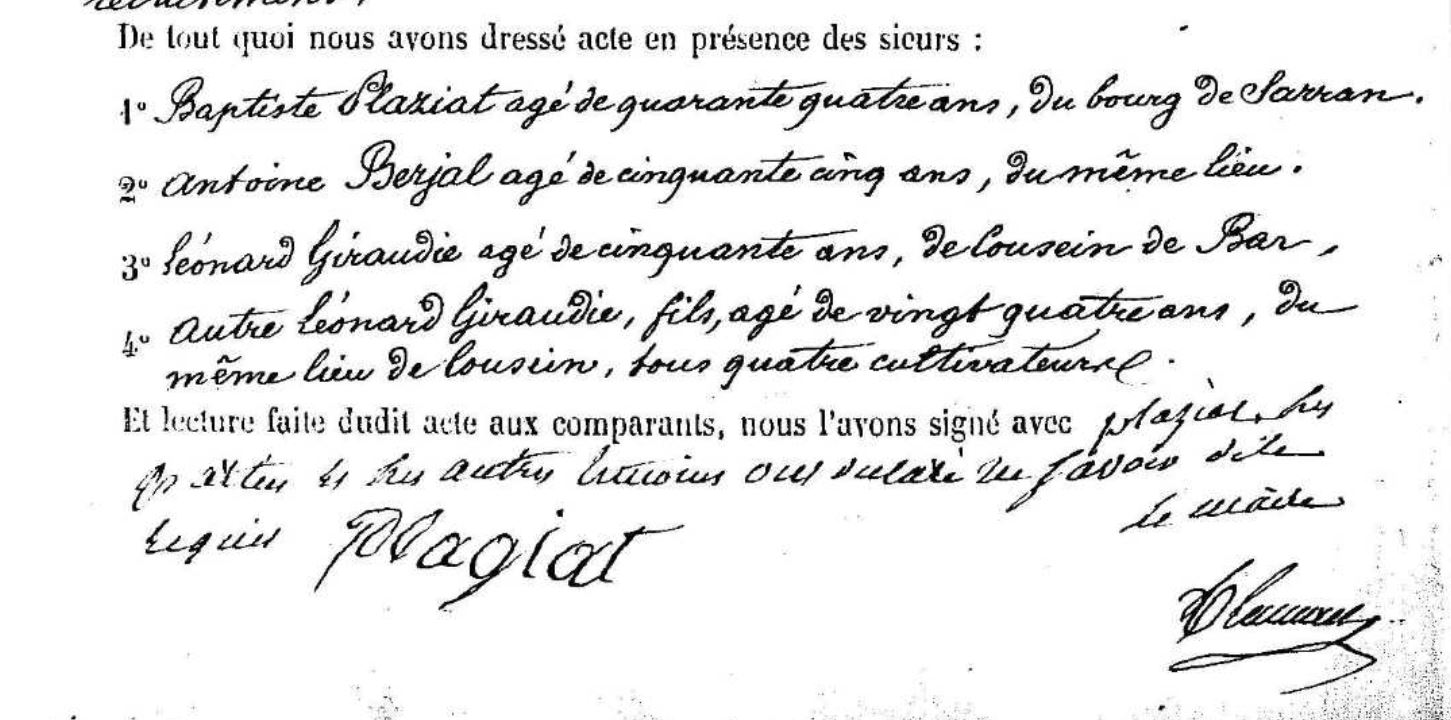 recrutement.
De tout quoi nous avons dressé acte en présence des sieurs :
1° Baptiste Plaziat agé de quarante quatre ans, du bourg de Sarran.
2° Antoine Berjal agé de cinquante cinq ans, du même lieu.
3° Léonard Giraudie agé de cinquante ans, de Cousein de Bar,
4° autre Léonard Giraudie, fils, agé de vingt quatre ans, du
même lieu de Cousein, tous quatre cultivateurs.
Et lecture faite dudit acte aux comparants, nous l'avons signé avec plaziat, les
et les autres temoins ont déclaré ne savoir de ce
requis Plagiat le maire